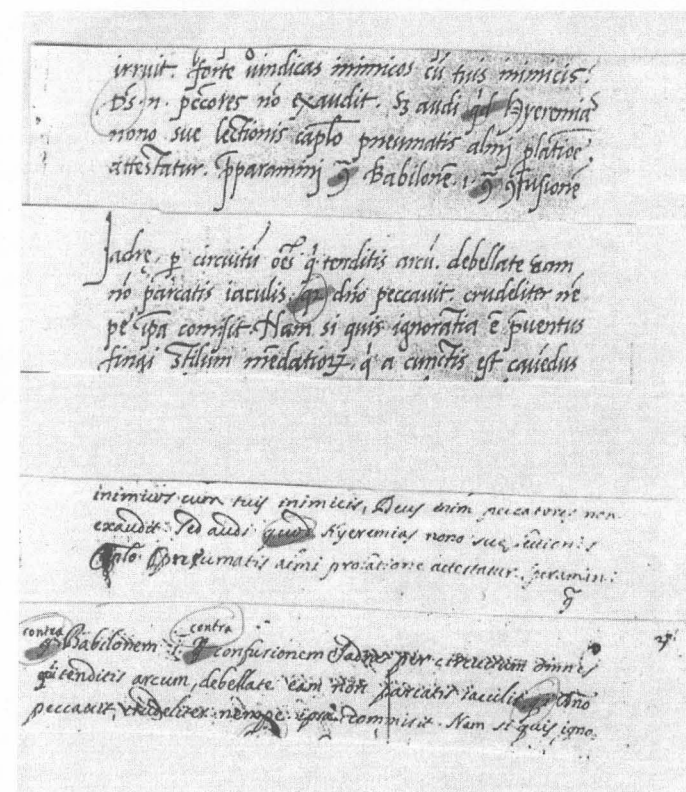 irruit. forte vindicas inimicos cũ tuis inimicis:
Ds̃. n. pctores nõ exaudit. Sꝫ audi qd Hyeremias
nono sue lectionis caplo pneumatis almi platiõe
attestatur. ꝓparamini ꝗ̃ Babilonẽ. i. ꝗ̃ ꝯfusionẽ
Jadre. ꝑ circuitũ oẽs q tenditis arcũ. debellate eam
nõ parcatis iaculis. qꝛ dño peccavit. crudeliter nẽ
pe ipa comisit. Nam si quis ignorãtia ẽ pventus
fingi stilum mẽdatioꝝ. q a cunctis est cavẽdus
inimicos cum tuis inimicis, Deus enim peccatores non
exaudit. Sed audi quod Hyeremias nono sue lectionis
caplo pneumatis almi prolatione attestatur. peramini
ꝗ̃
contra contra
ꝗ̃ Babilonem i. ꝗ̃ confusionem Jadre per circuitum omnes
qui tenditis arcum, debellate eam non parcatis iaculis qꝛ dño
peccavit, crudeliter nempe ipsa commisit. Nam si quis igno-